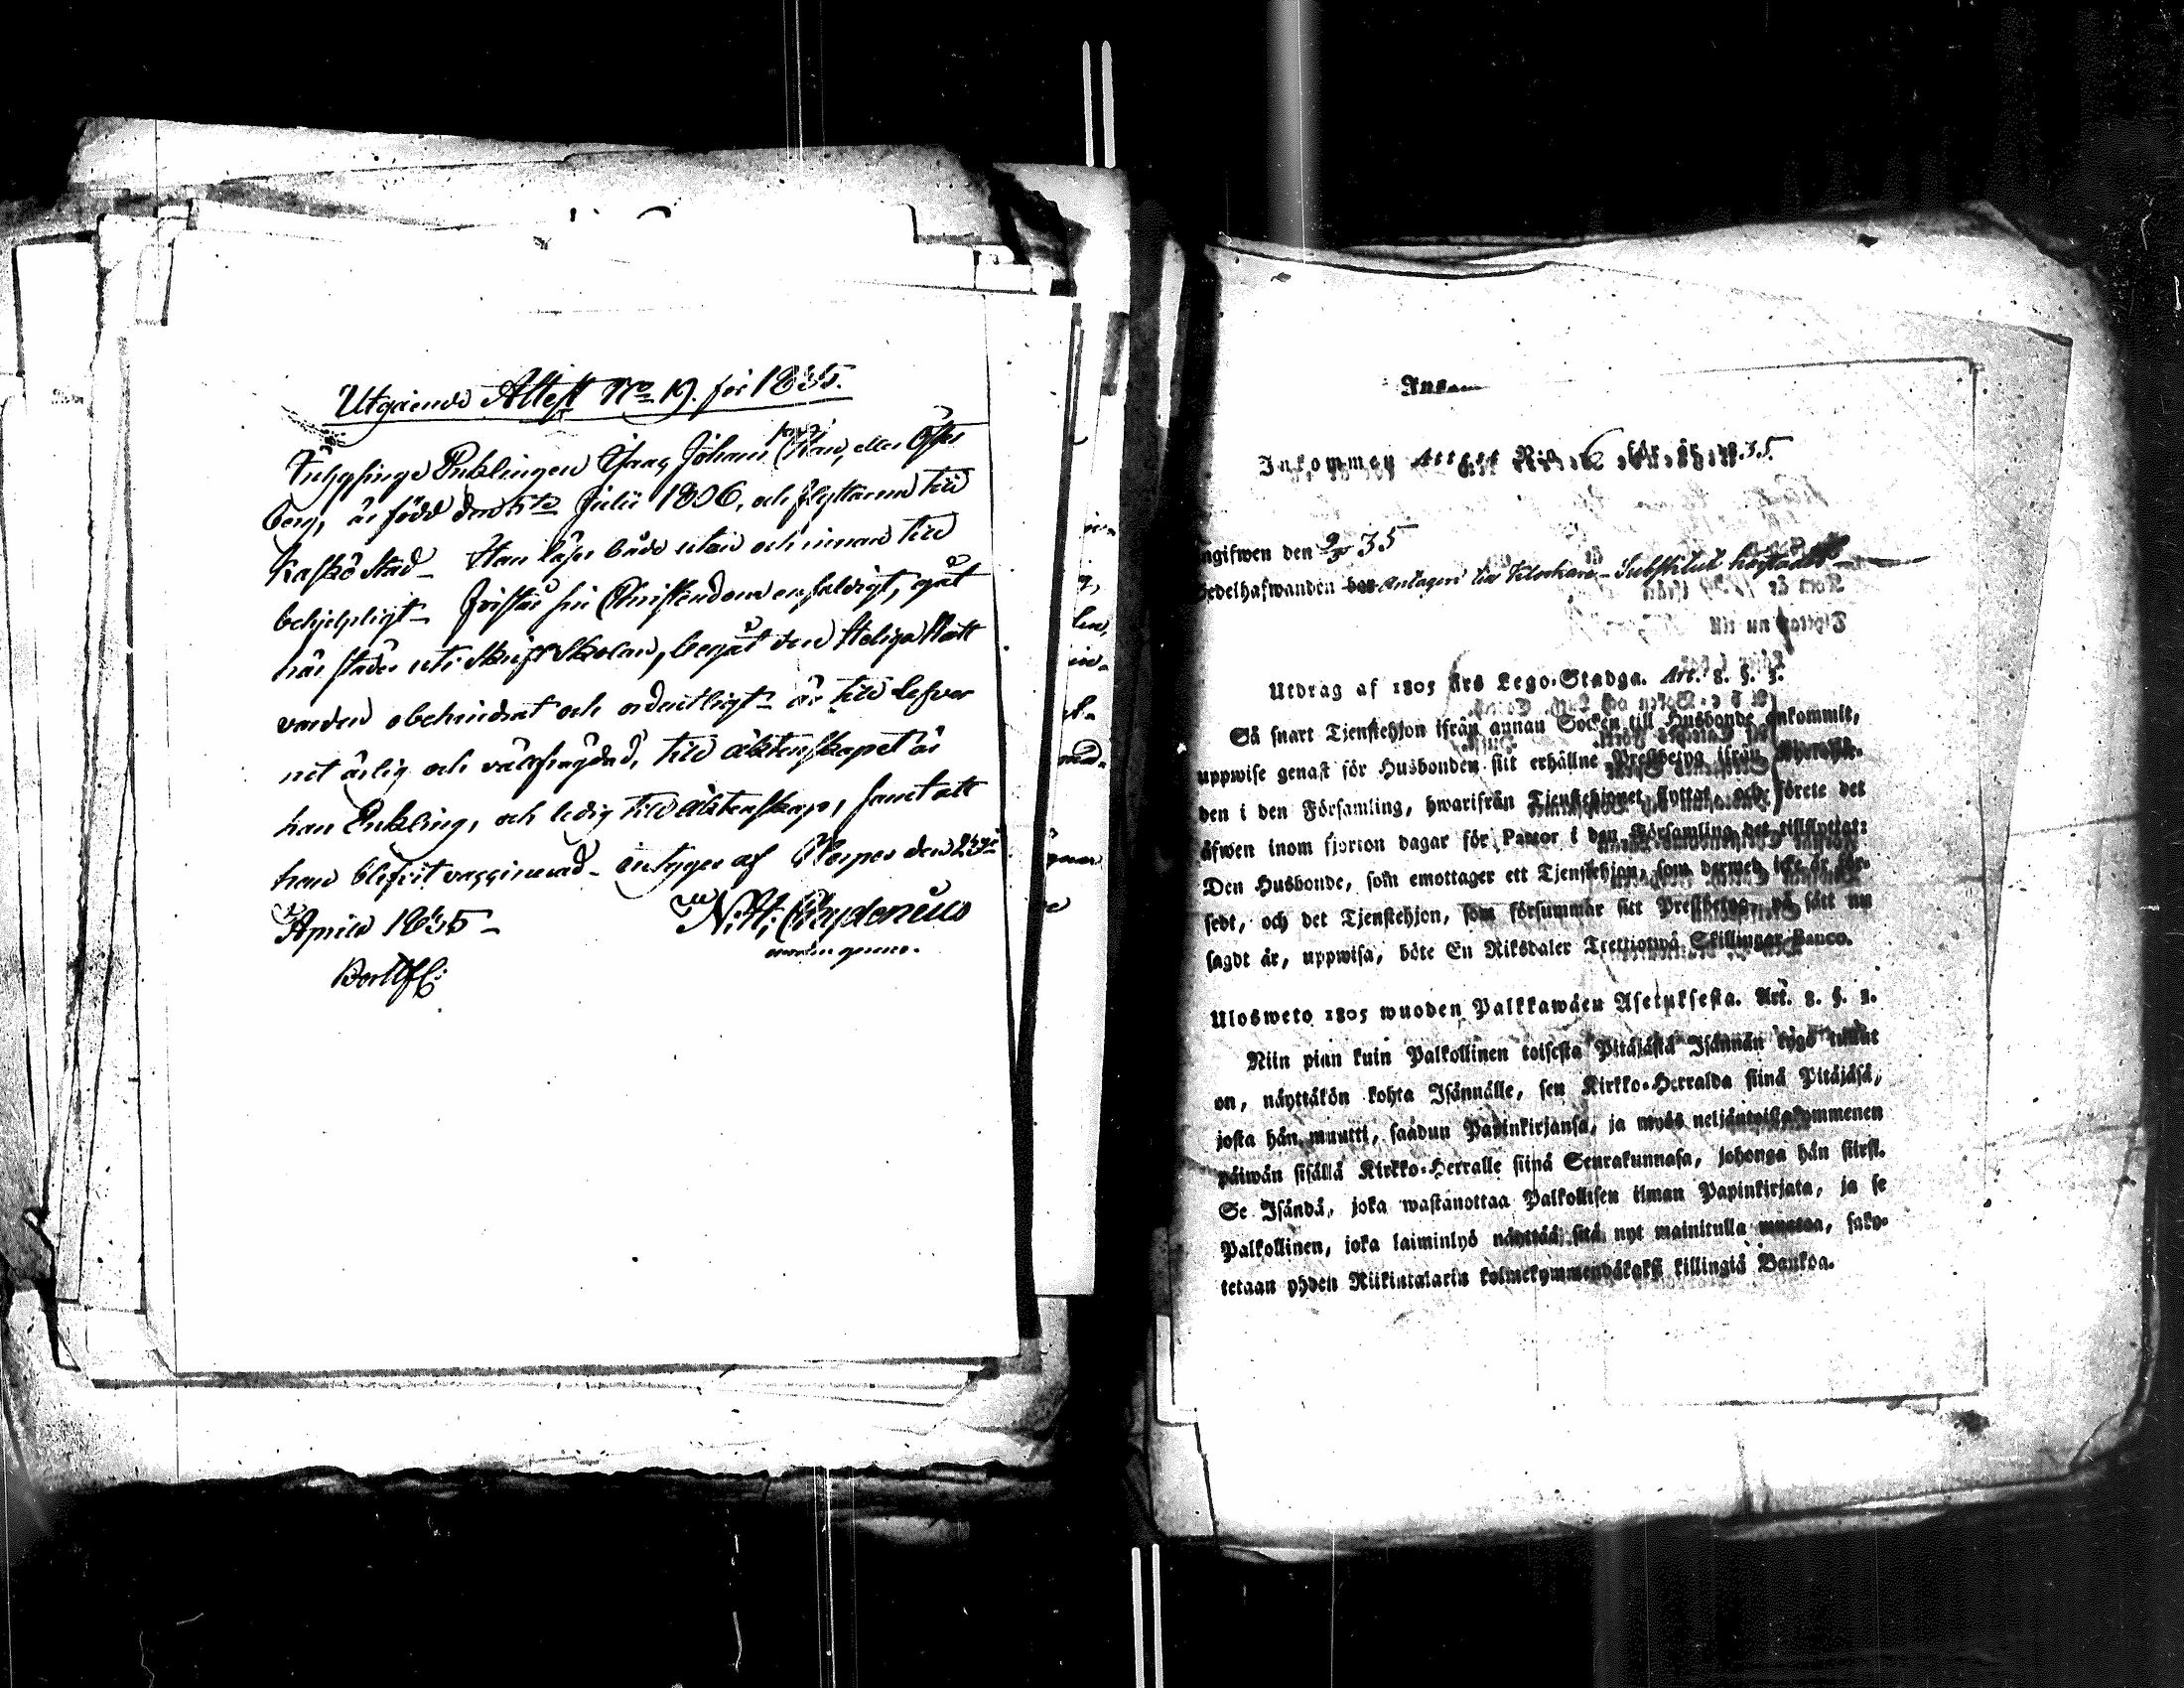 Utgående Attest No 19. för 1835.
Enklingen Isaac Johans son, eller Öster
berg, är född den 5te Julii 1806, och flyttar nu till
Kaskö Stad – Han läser både utan och innan till
behjelpligt – förstår sin Christendom enfaldigt, gåt
här städes uti Skrift Skolan, begåt den Heliga Natt
varden obehindrat och ordentligt – är till lefver
net ärlig och välfrägdad, till äktenskapet är
han Enkling, och ledig till äktenskap, samt att
han blifvit vaccinerad – intyger af Nerpes den 23
Aprill 1835 –
N. H. Chydenius
Inkommen Attest N:o 6 för år 1835
ngifwen den 2/3 35
edelhafwanden antagen till Klockare-Substitut härstädes
Utdrag af 1805 Års Lego-Stadga. Art. 8. §. 3.
Så snart Tjenstehjon ifrån annan Socken till Husbonde ankommit,
uppwise genast för Husbonden sitt erhållne Prestbetyg ifrån
den i den Församling, hwarifrån Tjenstehjonet flyttat, och förete det
äfwen inom fjorton dagar för Pastor i den Församling det tillflyttat:
Den Husbonde, som emottager ett Tjenstehjon, som dermed icke är för-
sedt, och det Tjenstehjon, som försummar sitt Prestbetyg, på sätt nu
sagdt är, uppwisa, böte En Riksdaler Trettiotwå Skillingar Banco.
Ulosweto 1805 wuoden Palkkawäen Asetuksesta. Art. 8. §. 3.
Niin pian kuin Palkollinen toisesta Pitäjästä Isännän tygö tullut
on, näyttäkön kohta Isännälle, sen Kirkko-Herralda siinä Pitäjäsä,
josta hän muutti, saadun Papinkirjansa, ja myös neljäntoistakymmenen
päiwän sisällä Kirkko-Herralle siinä Seurakunnasa, johonga hän siirsi.
Se Isändä, joka wastanottaa Palkollisen ilman Papinkirjata, ja se
Palkollinen, joka laiminlyö näyttää sitä nyt mainitulla muotoa, saky-
tetaan yhden Riikintalarin kolmekymmendäkaksi killingiä Bankoa.